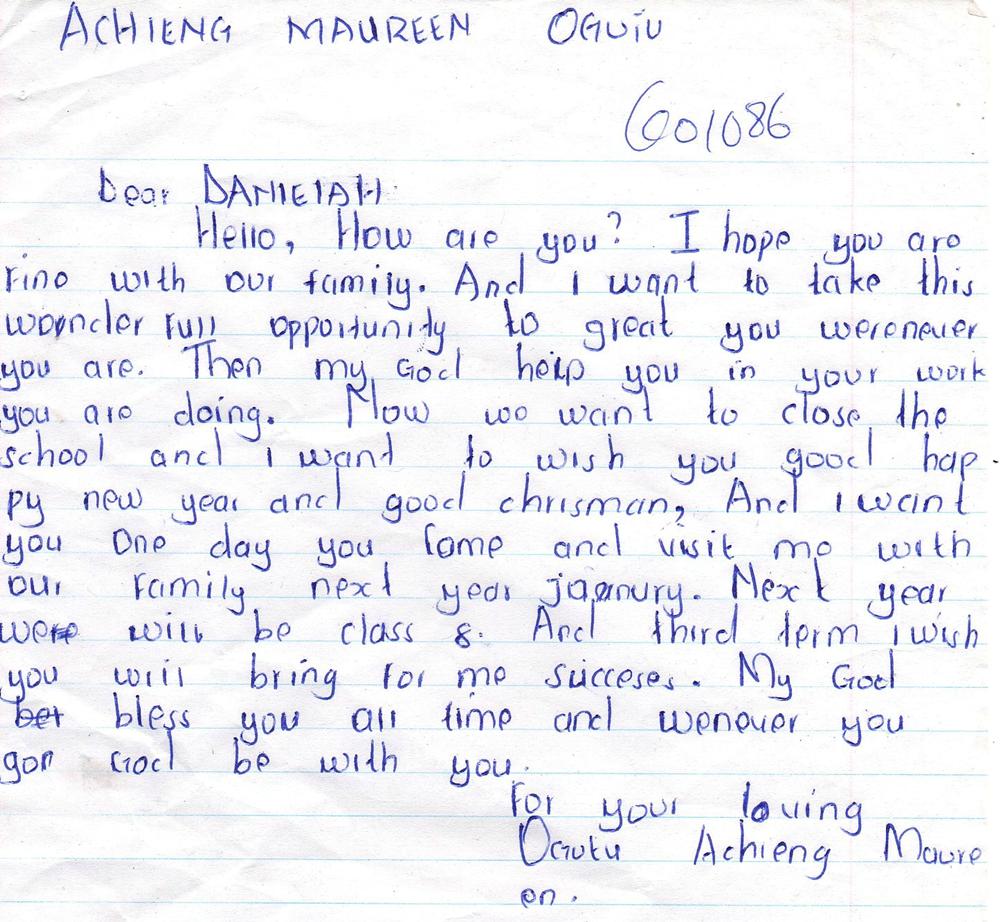 ACHIENG MAUREEN OGUTU
601086
Dear DANIELAH
Hello, How are you? I hope you are
fine with our family. And I want to take this
wonder full opportunity to great you werenever
you are. Then my God help you in your work
you are doing. Now we want to close the
school and I want to wish you good hap
py new year and good chrisman, And I want
you One day you Come and visit me with
our family next year jannury. Next year
we will be class 8. And third term I wish
you will bring for me succeses. My God
bet bless you all time and wenever you
gon God be with you.
For your loving
Ogutu Achieng Maure
en.